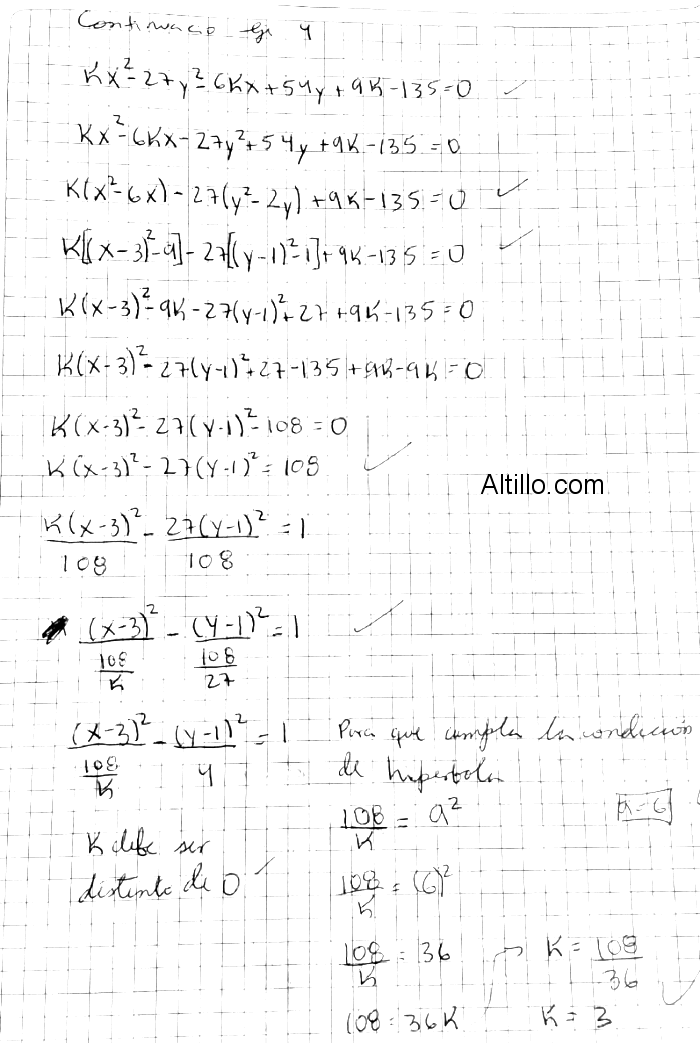 Continuació Ej 4
Kx²-27y²-6Kx+54y+9K-135=0
Kx²-6Kx-27y²+54y+9K-135=0
K(x²-6x)-27(y²-2y)+9K-135=0
K[(x-3)²-9]-27[(y-1)²-1]+9K-135=0
K(x-3)²-9K-27(y-1)²+27+9K-135=0
K(x-3)²-27(y-1)²+27-135+9K-9K=0
K(x-3)²-27(y-1)²-108=0
K(x-3)²-27(y-1)²=108
Altillo.com
K(x-3)²/108 - 27(y-1)²/108 = 1
(x-3)²/(108/K) - (y-1)²/(108/27) = 1
(x-3)²/(108/K) - (y-1)²/4 = 1
K debe ser
distinto de 0
Para que cumpla la condición
de hiperbola
108/K = a²
a=6
108/K = (6)²
108/K = 36
K = 108/36
108=36K
K = 3